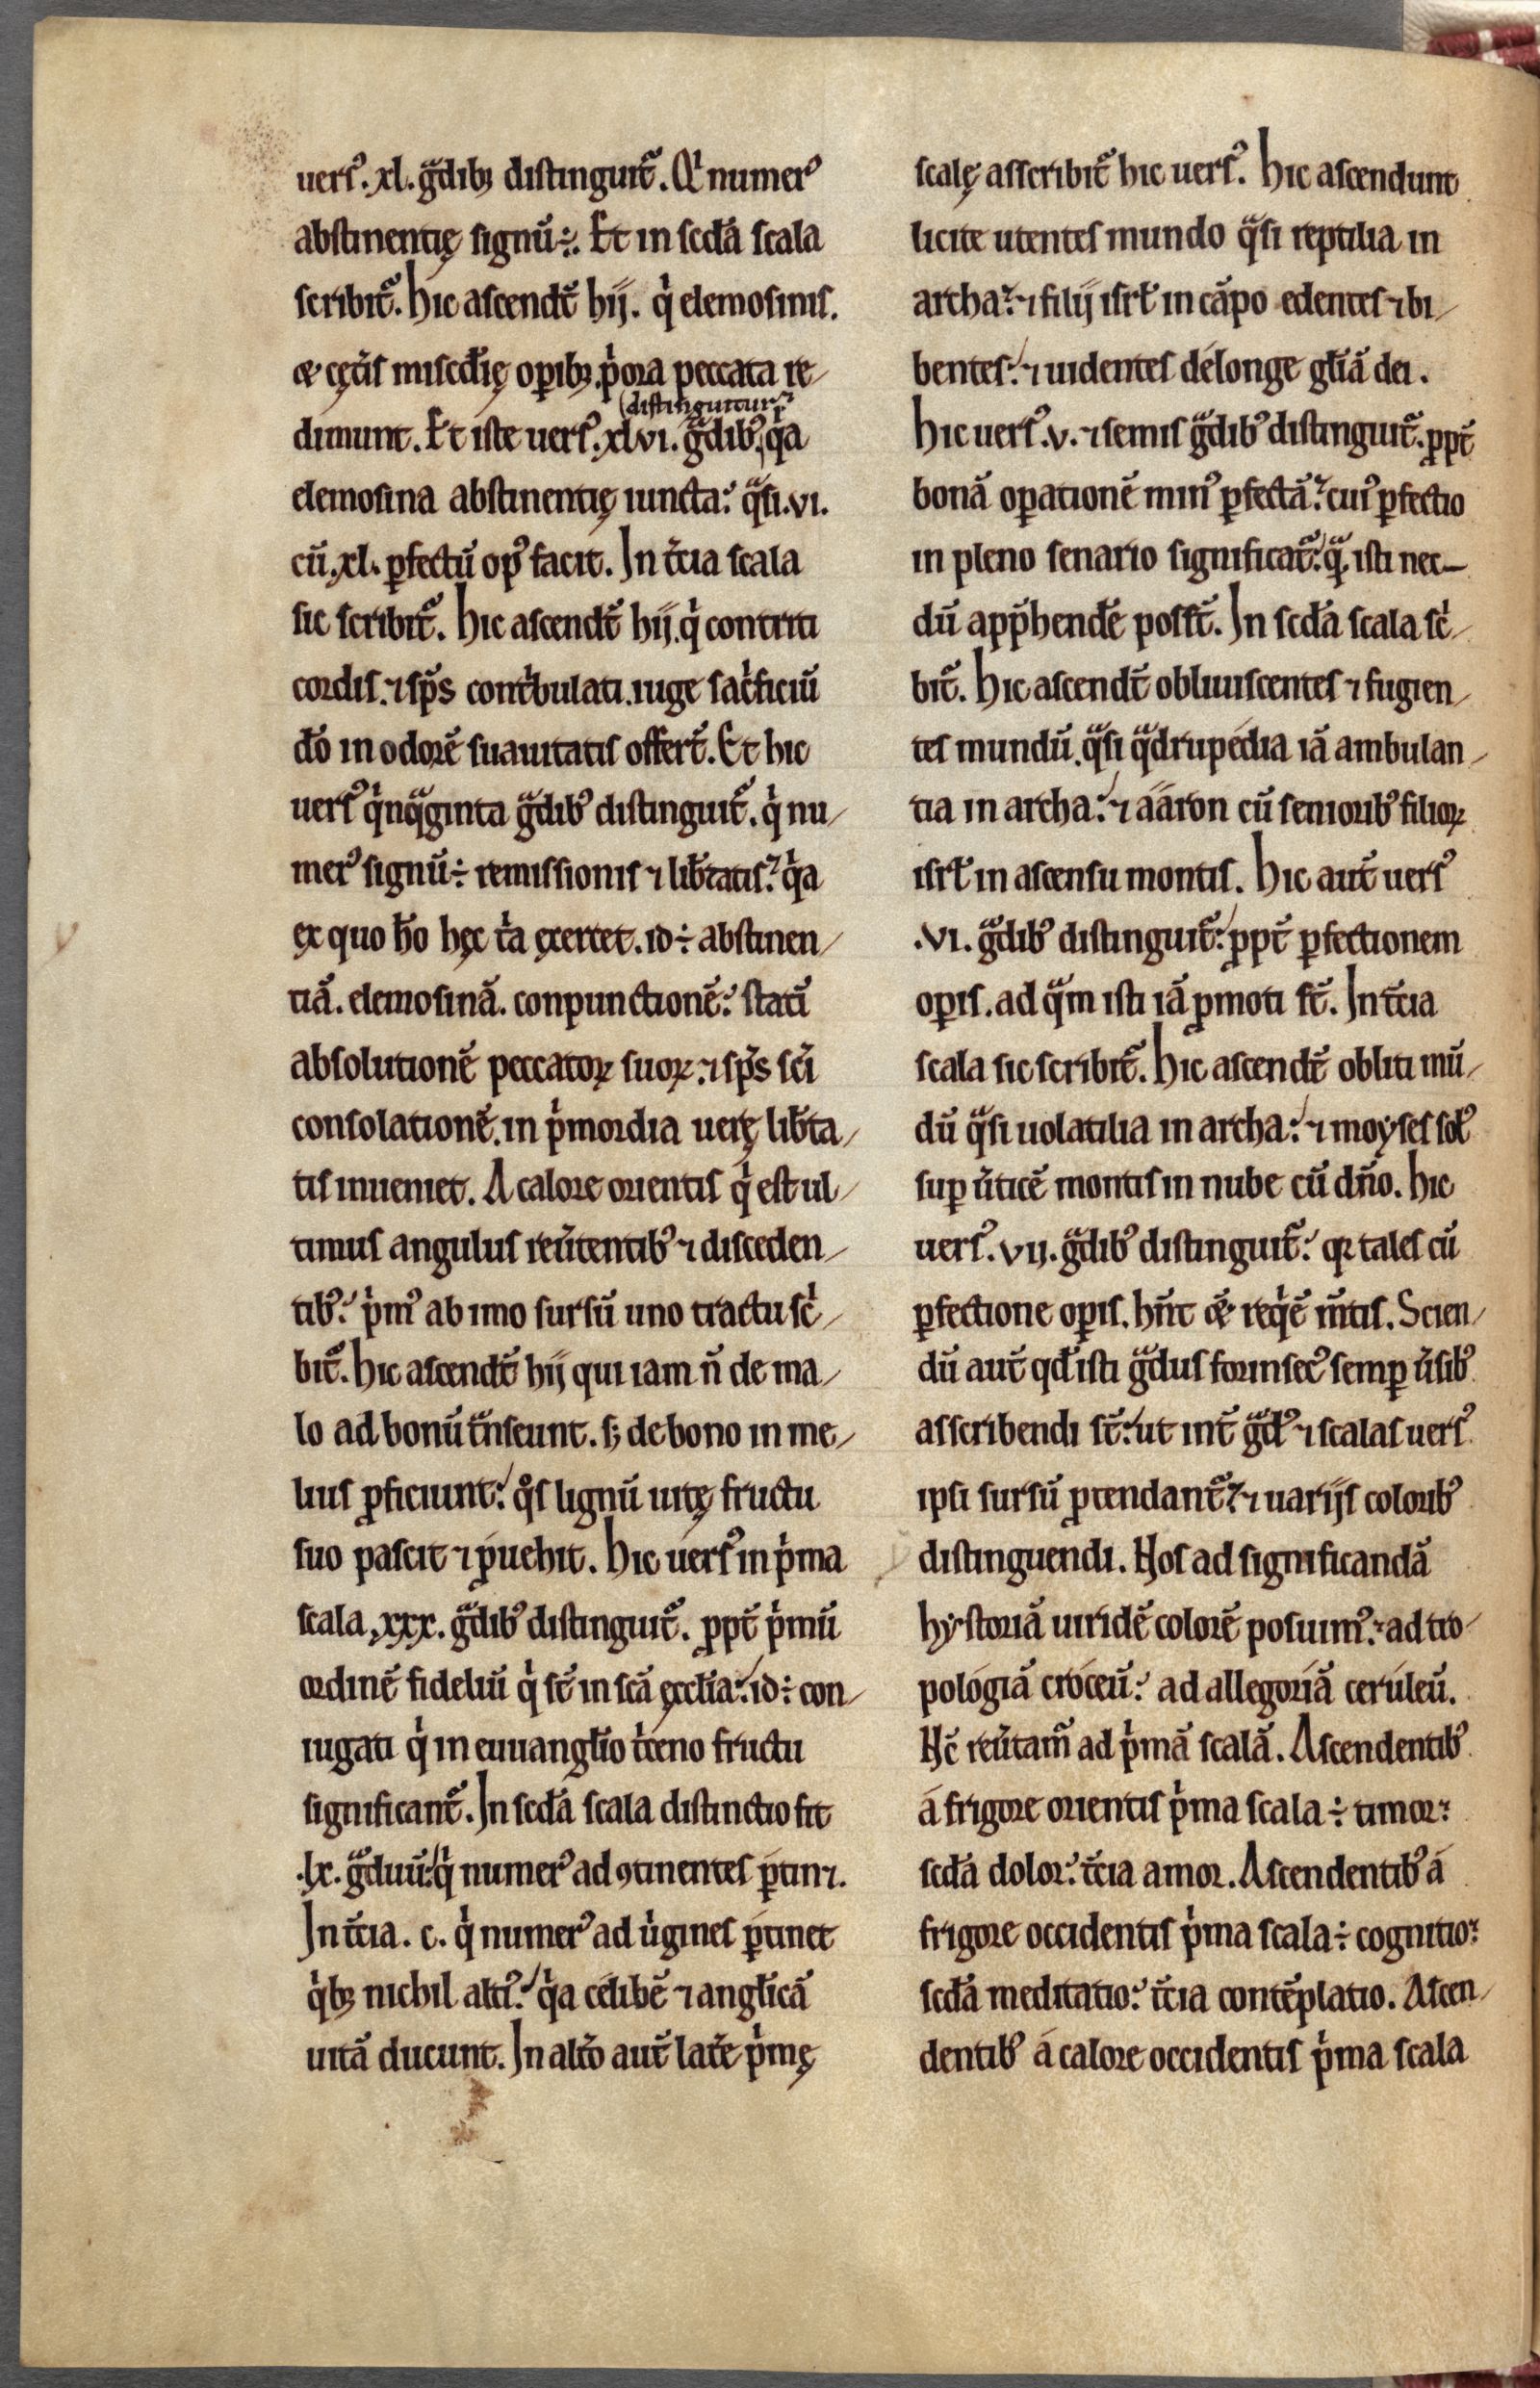 uerſꝰ. xl. gͣdibꝫ diſtinguit᷑. Qͥ numerꝰ
abſtinentię ſignū ÷. Et in ſcd̄a ſcala
ſcribit᷑. hic aſcendt̄ hij. qͥ elemoſinis.
& cęt̄is miſcd̄ię oꝑibꝫ. pͥora peccata re-
(diſtinguitur
dimunt. Et iſte uerſꝰ. xlvi. gͣdibꝰ, qͥa
elemoſina abſtinentię iuncta: qͣſi. vi.
cū. xl. ꝑfectū opꝰ facit. In t̄cia ſcala
ſic ſcribit᷑. hic aſcendt̄ hij. qͥ contriti
cordiſ. ⁊ ſp̄s contͥbulati. iuge ſacͥficiū
dō in odorē ſuauitatiſ offert̄. Et hic
uerſꝰ qͥnqͣginta gͣdibꝰ diſtinguit᷑. qͥ nu-
merꝰ ſignū ÷ remiſſioniſ ⁊ lib̄tatiſ: qͥa
ex quo hō hęc tͥa exercet. id ÷ abſtinen-
tiā. elemoſinā. conpunctionē: ſtatī
abſolutionē peccatoꝝ ſuoꝝ. ⁊ ſp̄s ſcī
conſolationē. in pͥmordia uerę lib̄ta-
tiſ inueniet. A calore orientiſ qͥ eſt ul-
timuſ anguluſ reūtentibꝰ ⁊ diſceden-
tibꝰ: pͥmꝰ ab imo ſurſū uno tractu ſcͥ-
bit᷑. hic aſcendt̄ hij qui iam n̄ de ma-
lo ad bonū tͣnſeunt. ſꝫ de bono in me-
liuſ ꝓficiunt: qͦſ lignū uitę fructu
ſuo paſcit ⁊ ꝓuehit. hic uerſꝰ in pͥma
ſcala. xxx. gͣdibꝰ diſtinguit᷑. ꝓpt̄ pͥmū
ordinē fideliū qͥ ſt̄ in ſcā ęccl̄ia: id ÷ con-
iugati qͥ in euuangl̄io tͥceno fructu
ſignificant᷑. In ſcd̄a ſcala diſtinctio fit
.lx. gͣduū: qͥ numerꝰ ad ꝯtinenteſ ꝑtin⁊.
In t̄cia. c. qͥ numerꝰ ad uͥgineſ ꝑtinet
qͥbꝫ nichil altiꝰ: qͥa celibē ⁊ angl̄icā
uitā ducunt. In alt̄o aut̄ lat̄e pͥmę
ſcalę aſſcribit᷑ hic uerſꝰ. hic aſcendunt
licite utenteſ mundo qͣſi reptilia in
archa: ⁊ filij iſrl̄ in cāpo edenteſ ⁊ bi-
benteſ: ⁊ uidenteſ délonge gl̄iā dei.
hic uerſꝰ. v. ⁊ ſemiſ gͣdibꝰ diſtinguit᷑. ꝓpt̄
bonā oꝑationē minꝰ ꝑfectā: cuiꝰ ꝑfectio
in pleno ſenario ſignificat᷑: qͣ. iſti nec-
dū app̄hendē poſſt̄. In ſcd̄a ſcala ſcͥ-
bit᷑. hic aſcendt̄ obliuiſcenteſ ⁊ fugien-
teſ mundū. qͣſi qͣdrupédia iā ambulan-
tia in archa: ⁊ ááron cū ſenioribꝰ filioꝝ
iſrl̄ in aſcenſu montiſ. hic aut̄ uerſꝰ
.vi. gͣdibꝰ diſtinguit᷑: ꝓpt̄ ꝑfectionem
oꝑiſ. ad qͣm iſti iā ꝓmoti ſt̄. In t̄cia
ſcala ſic ſcribit᷑. hic aſcendt̄ obliti mū-
dū qͣſi uolatilia in archa: ⁊ moẏſeſ ſolꝰ
ſuꝑ ūticē montiſ in nube cū dn̄o. hic
uerſꝰ. vij. gͣdibꝰ diſtinguit᷑: qꝛ taleſ cū
ꝑfectione oꝑiſ. hn̄t & reqͥē m̄tiſ. Scien-
dū aut̄ qd̄ iſti gͣduſ forinſecꝰ ſemꝑ ūſibꝰ
aſſcribendi ſt̄: ut int̄ gͣdꝰ ⁊ ſcalaſ uerſꝰ
ipſi ſurſū ꝓtendant᷑: ⁊ uarijſ coloribꝰ
diſtinguendi. Hoſ ad ſignificandā
hẏſtoriā uiridē colorē poſuimꝰ: ad tro-
pológiā cróceū: ad allegoriā cerúleū.
Hc̄ reūtam᷑ ad pͥmā ſcalā. Aſcendentibꝰ
á frigore orientiſ pͥma ſcala ÷ timor:
ſcd̄a dolor: t̄cia amor. Aſcendentibꝰ á
frigore occidentiſ pͥma ſcala ÷ cognitio:
ſcd̄a meditatio: t̄cia contēplatio. Aſcen-
dentibꝰ á calore occidentiſ pͥma ſcala